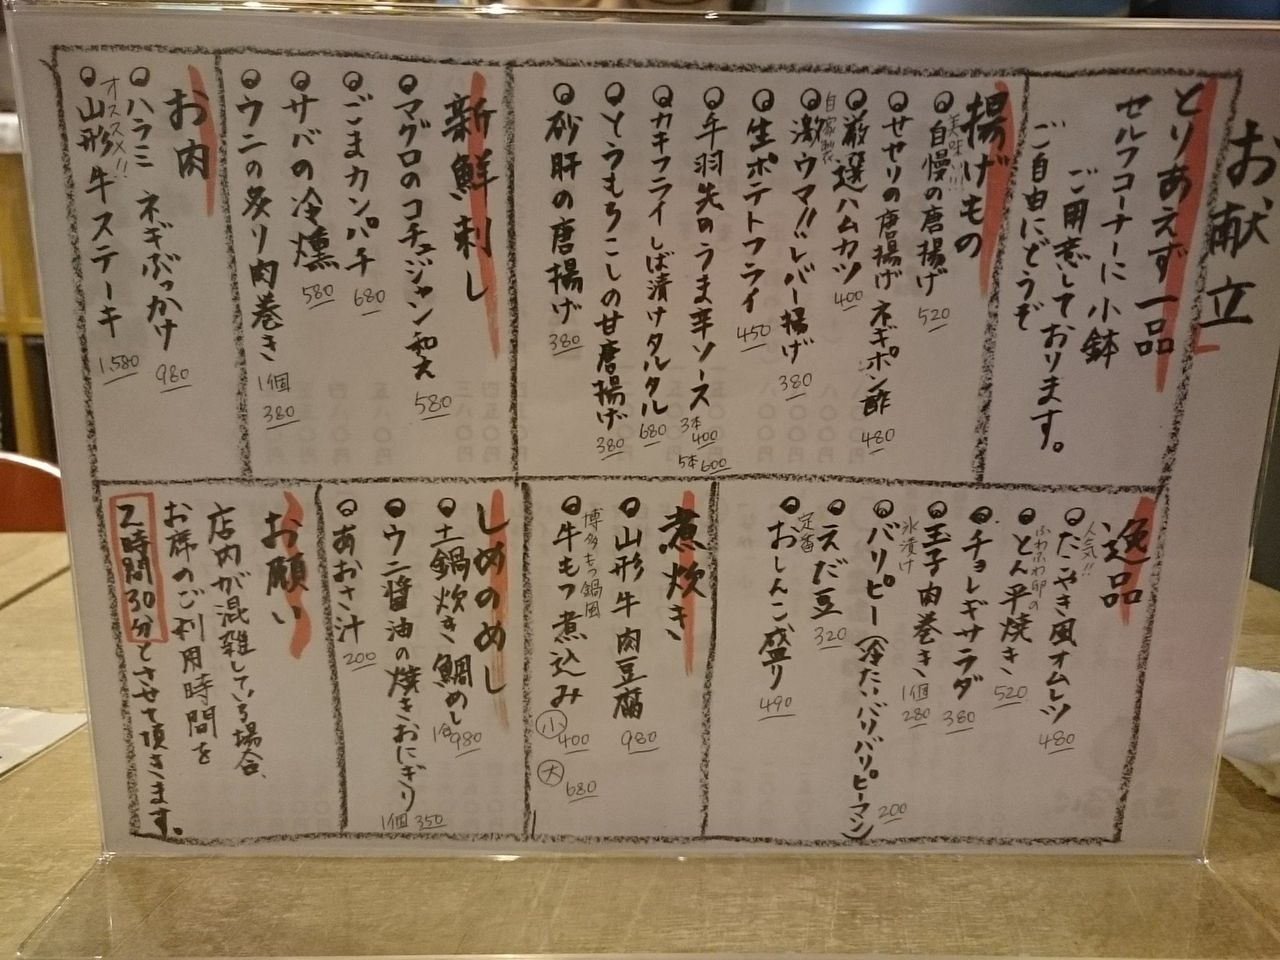 お献立
とりあえず一品
セルフコーナーに小鉢
ご用意しております。
ご自由にどうぞ
揚げもの
美味!!!
自慢の唐揚げ 520
せせりの唐揚げ ネギポン酢 480
厳選ハムカツ 400
自家製
激ウマ!!レバー揚げ 380
生ポテトフライ 450
手羽先のうま辛ソース 3本 400
5本 600
カキフライ しば漬けタルタル 680
とうもろこしの甘唐揚げ 380
砂肝の唐揚げ 380
新鮮刺し
マグロのコチュジャン和え 580
ごまカンパチ 680
サバの冷燻 580
ウニの炙り肉巻き 1個 380
お肉
ハラミ ネギぶっかけ 980
オススメ!!
山形牛ステーキ 1,580
逸品
人気!!
たこやき風オムレツ 480
ふわふわ卵の
とん平焼き 520
チョレギサラダ 380
玉子肉巻き 1個 280
氷漬け
バリピー(冷たいバリバリピーマン) 200
えだ豆 320
定番
おしんこ盛り 490
煮炊き
山形牛肉豆腐 980
博多もつ鍋風
牛もつ煮込み 小 400
大 680
しめのめし
土鍋炊き鯛めし 1合 980
ウニ醤油の焼きおにぎり 1個 350
あおさ汁 200
お願い
店内が混雑している場合、
お席のご利用時間を
2時間30分とさせて頂きます。